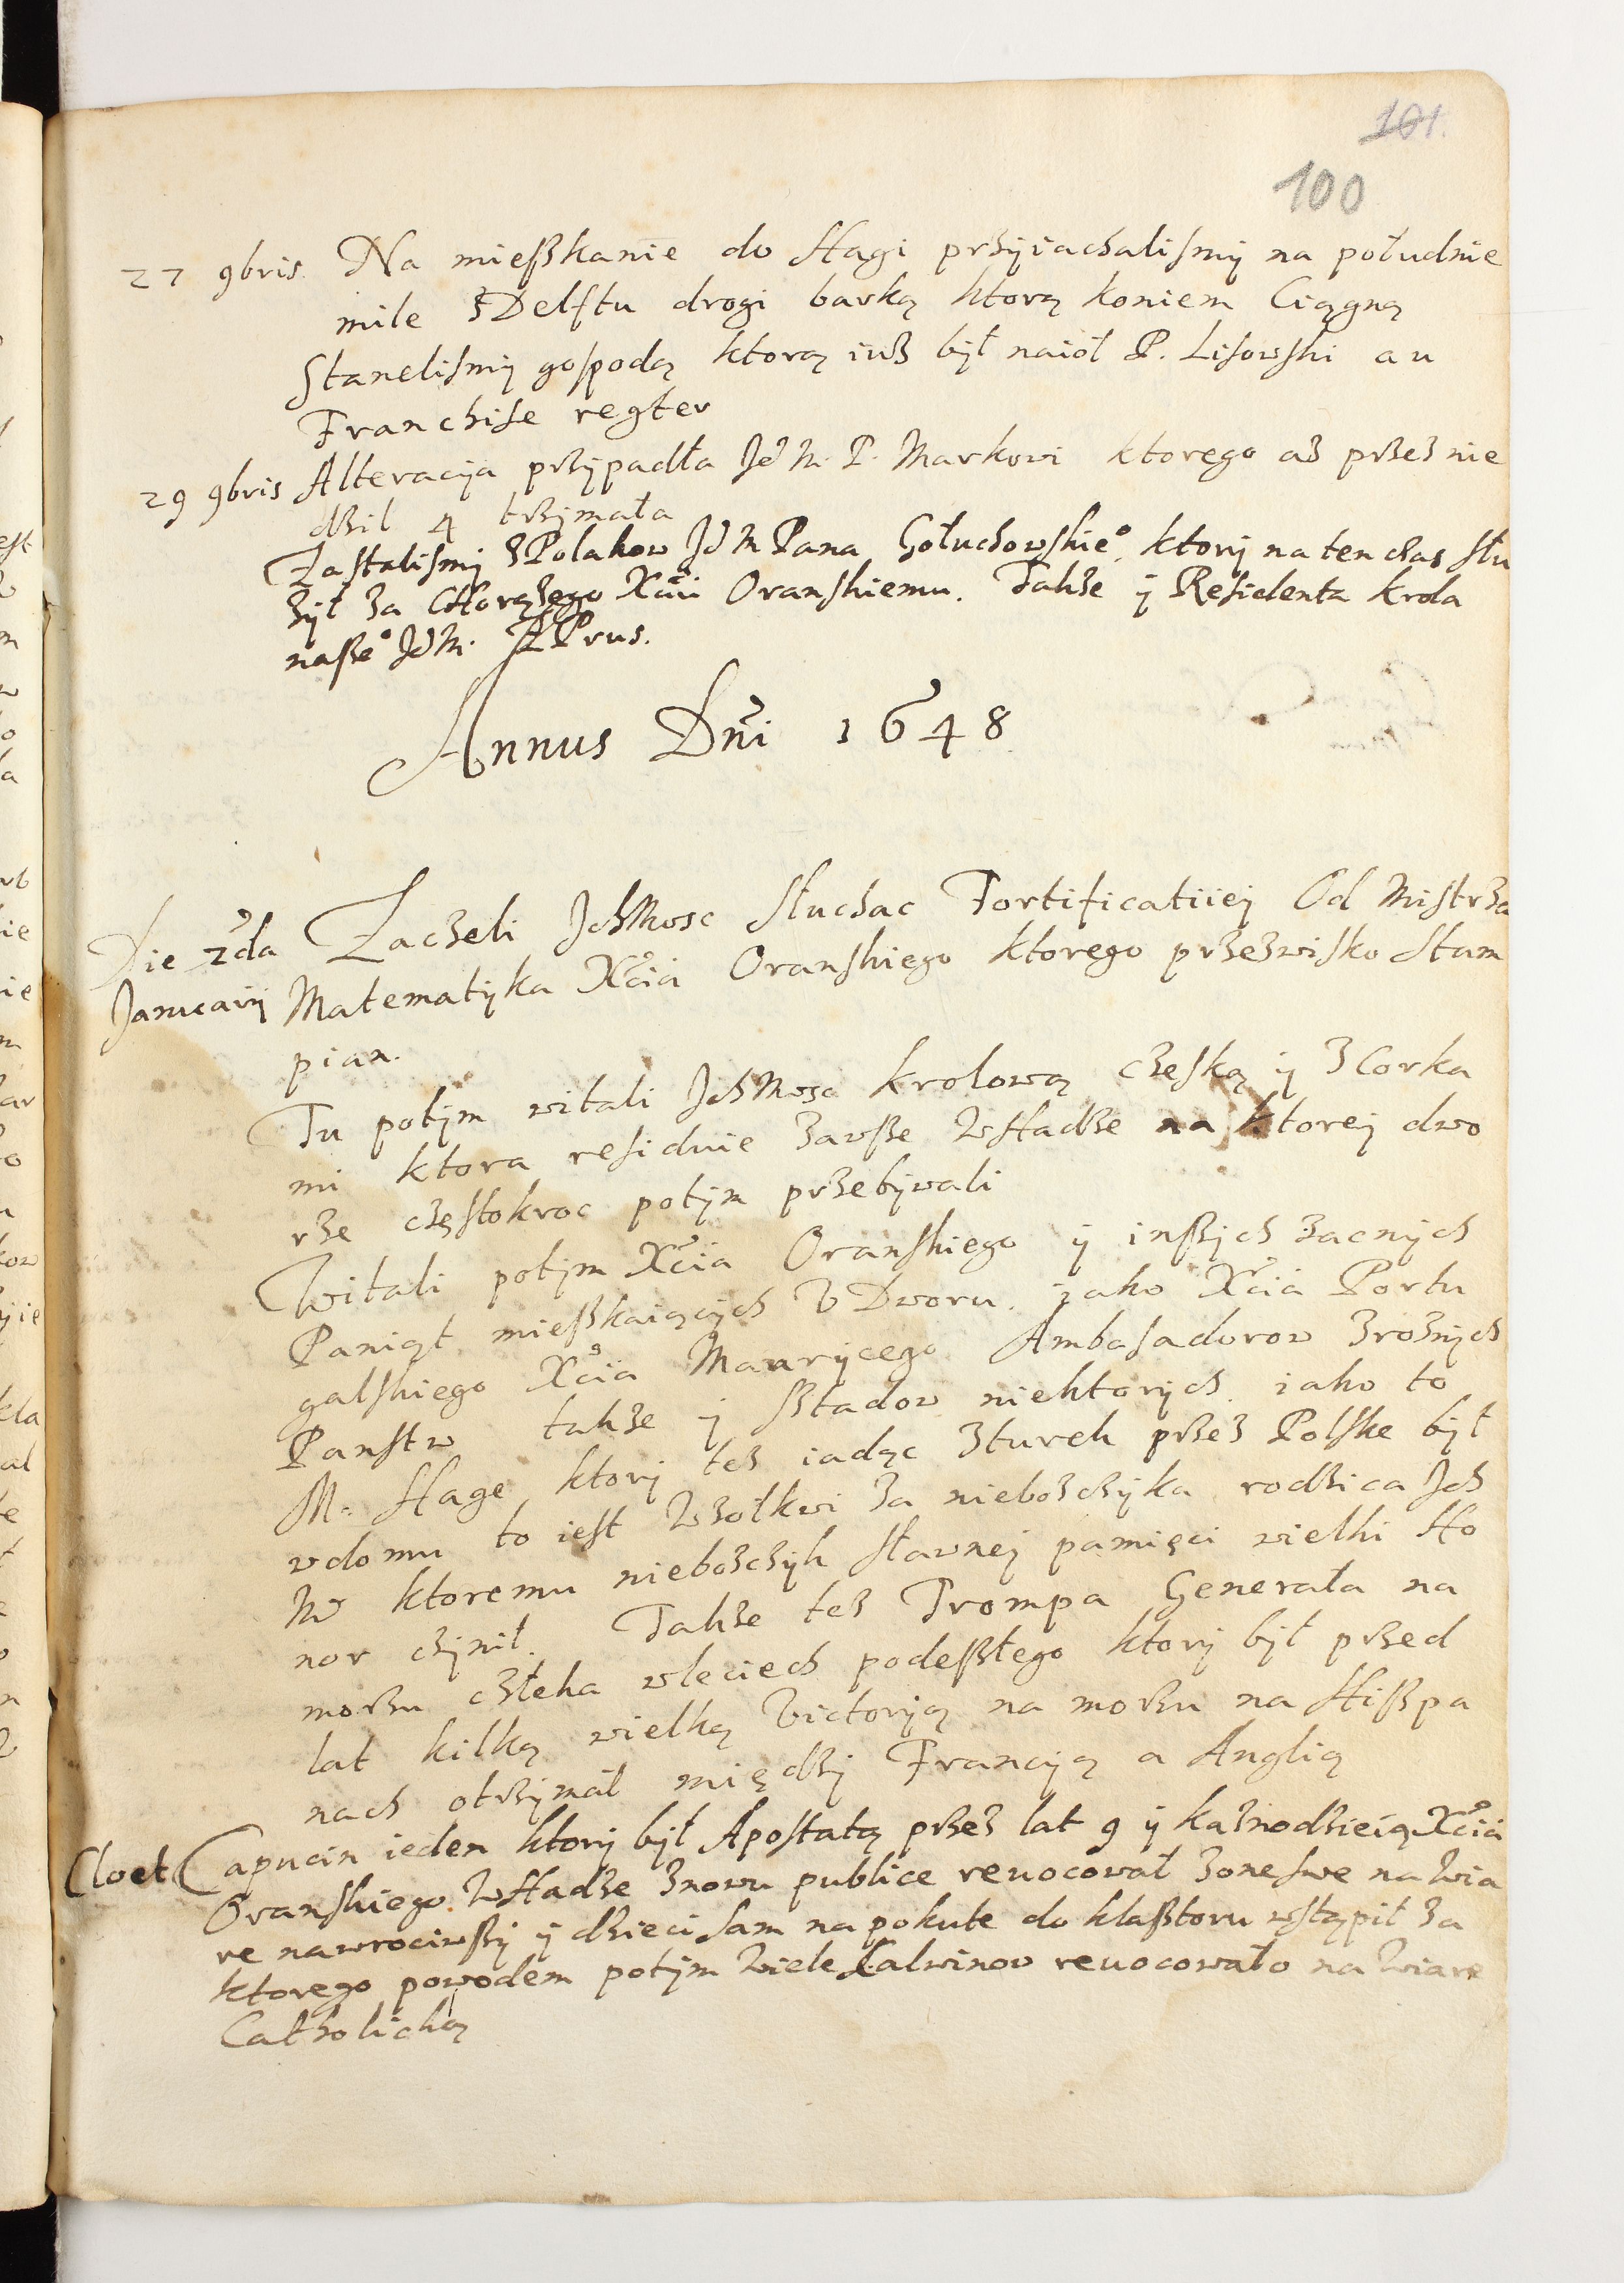 101.
100
27 9bris. Na mießkanie do Hagi przyiachalismy na południe
mile z Delftu drogi barką ktorą koniem Ciągną
Stanelismy gospodą ktorą iuz był naiół P. Lisowski au
Franchise regter
29 9bris Alteracyia przypadła JeM. P. Markowi ktorego az przez nie
dzil 4 trzymała
Zastalismy z Polakow JeM Pana Gołuchowskie° ktory na ten czas słu
zył za Chorązego Xciu Oranskiemu. Takze y Residenta krola
nasze° JeM. Prus.
Annus Dñi 1648
Die 2da Zaczeli IchMosc słuchac Fortificatiiey Od Mistrza
Januarij Matematyka Xcia Oranskiego ktorego przezwisko Stam
pian.
Tu potym witali IchMosc krolową czeską y z Corka
mi ktora residuie zawsze w Hadze na ktorey dwo
rze częstokroc potym przebywali
Witali potym Xcia Oranskiego y inßych zacnych
Paniąt mießkaiących v Dworu. iako Xcia Portu
galskiego Xcia Maurycego Ambasadorow z roznych
Panstw takze y sztadow niektorych iako to
M. Hage ktory tez iadąc z turek przez Polske był
v domu to iest w Zołkwi za nieboszczyka rodzica Ich
M ktoremu nieboszczyk sławney pamięci wielki Ho
nor czynił. Takze tez Trompa Generała na
morzu człeka w leciech podeszłego ktory był przed
lat kilką wielką Victoryią na morzu na Hißpa
nach otrzymał między Francyią a Anglią
Cloet Capucin ieden ktory był Apostatą przez lat 9 y kaznodzieią Xcia
Oranskiego w Hadze znowu publice reuocował zone swe na wia
re nawrociwszy y dzieci sam na pokute do klaßtoru wstąpił za
ktorego powodem potym wiele Calwinow reuocowało na wiare
Catholicką